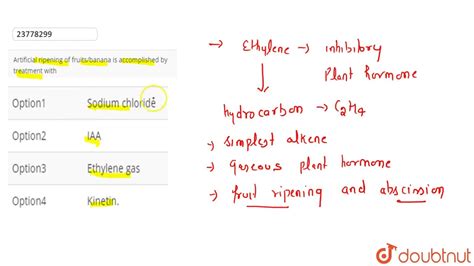 23778299
Artificial ripening of fruits/banana is accomplished by
treatment with
Option1 Sodium chloride
Option2 IAA
Option3 Ethylene gas
Option4 Kinetin.
→ Ethylene → inhibitory
plant hormone
hydrocarbon → C2H4
→ simplest alkene
→ gaseous plant hormone
→ fruit ripening and abscission
doubtnut